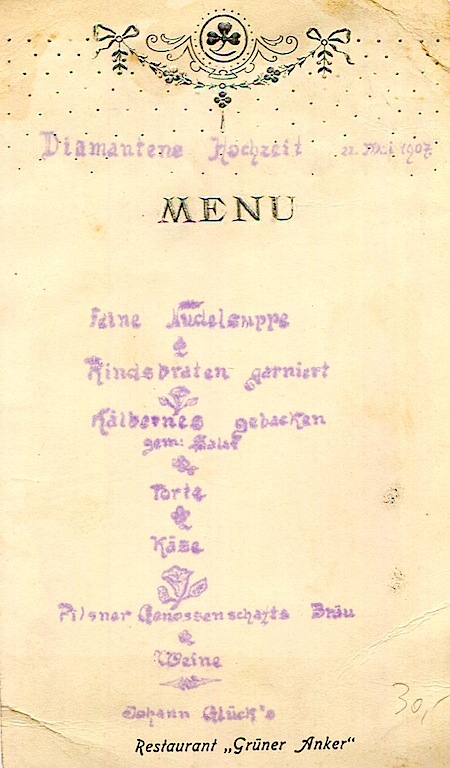 Diamantene Hochzeit 22. Mai 1907
MENU
Feine Nudelsuppe
Rindsbraten garniert
Kälbernes gebacken
gem: Salat
Torte
Käse
Pilsner Genossenschafts Bräu
Weine
Johann Glück's
Restaurant „Grüner Anker"
30,-